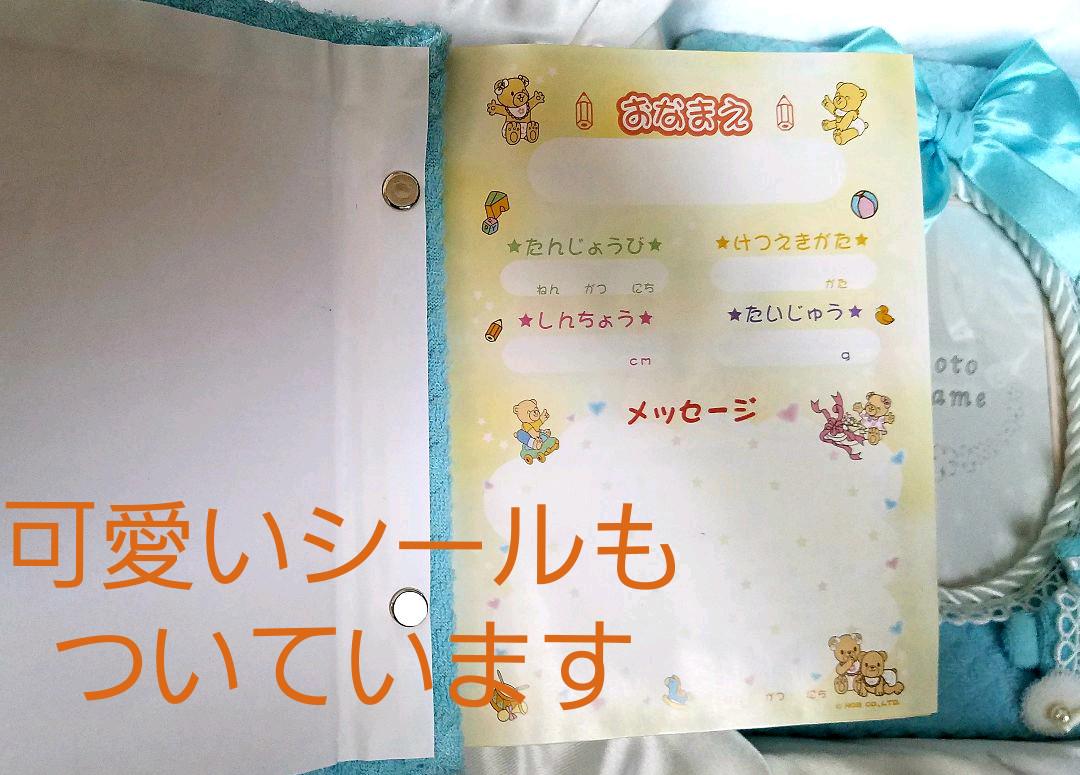 おなまえ
★たんじょうび★ ★けつえきがた★
ねん がつ にち がた
★しんちょう★ ★たいじゅう★
cm g
メッセージ
oto
ame
可愛いシールも
ついています
がつ にち